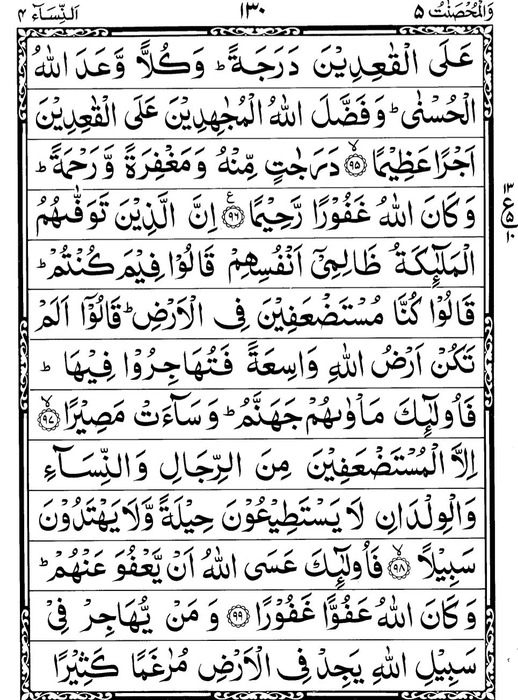 وَالْمُحْصَنٰتُ ۵ ۱۳۰ اَلنِّسَآء ۴
عَلَى الْقٰعِدِيْنَ دَرَجَةً ؕ وَكُلًّا وَّعَدَ اللّٰهُ
الْحُسْنٰى ؕ وَفَضَّلَ اللّٰهُ الْمُجٰهِدِيْنَ عَلَى الْقٰعِدِيْنَ
اَجْرًا عَظِيْمًا ۙ﴿۹۵﴾ دَرَجٰتٍ مِّنْهُ وَمَغْفِرَةً وَّرَحْمَةً ؕ
وَكَانَ اللّٰهُ غَفُوْرًا رَّحِيْمًا ﴿۹۶﴾ ع اِنَّ الَّذِيْنَ تَوَفّٰىهُمُ
۱۳ ع ۵ ۱۰
الْمَلٰٓئِكَةُ ظَالِمِىْۤ اَنْفُسِهِمْ قَالُوْا فِيْمَ كُنْتُمْ ؕ
قَالُوْا كُنَّا مُسْتَضْعَفِيْنَ فِى الْاَرْضِ ؕ قَالُوْۤا اَلَمْ
تَكُنْ اَرْضُ اللّٰهِ وَاسِعَةً فَتُهَاجِرُوْا فِيْهَا ؕ
فَاُولٰٓئِكَ مَاْوٰىهُمْ جَهَنَّمُ ؕ وَسَآءَتْ مَصِيْرًا ۙ﴿۹۷﴾
اِلَّا الْمُسْتَضْعَفِيْنَ مِنَ الرِّجَالِ وَالنِّسَآءِ
وَالْوِلْدَانِ لَا يَسْتَطِيْعُوْنَ حِيْلَةً وَّلَا يَهْتَدُوْنَ
سَبِيْلًا ۙ﴿۹۸﴾ فَاُولٰٓئِكَ عَسَى اللّٰهُ اَنْ يَّعْفُوَ عَنْهُمْ ؕ
وَكَانَ اللّٰهُ عَفُوًّا غَفُوْرًا ﴿۹۹﴾ وَمَنْ يُّهَاجِرْ فِىْ
سَبِيْلِ اللّٰهِ يَجِدْ فِى الْاَرْضِ مُرٰغَمًا كَثِيْرًا